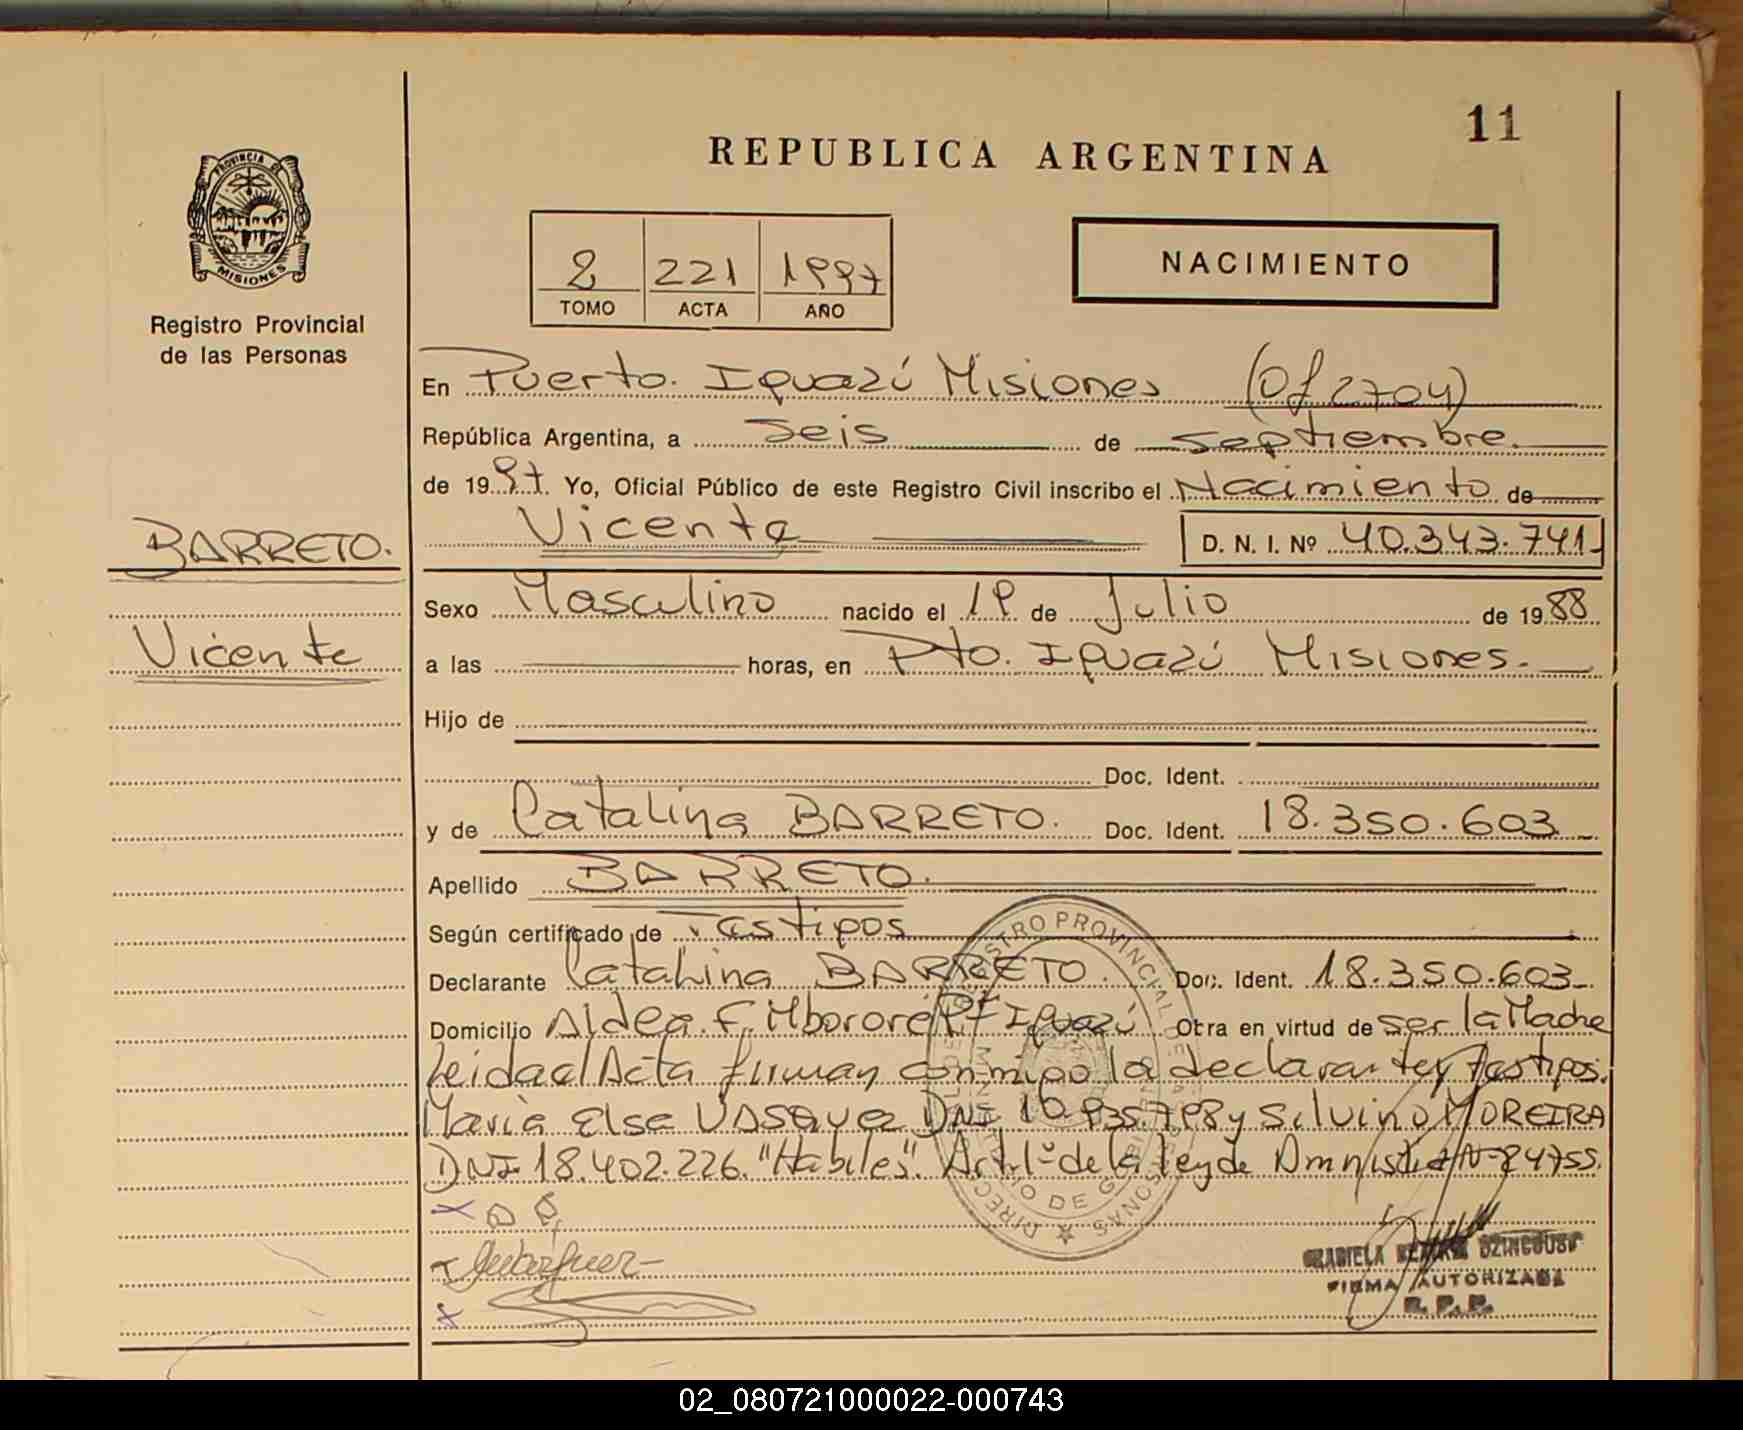 11
REPUBLICA ARGENTINA
PROVINCIA DE
MISIONES
Registro Provincial
de las Personas
2 221 1997
TOMO ACTA AÑO
NACIMIENTO
En Puerto. Iguazú Misiones (Of 2704)
República Argentina, a Seis de septiembre.
de 1997. Yo, Oficial Público de este Registro Civil inscribo el Nacimiento de
Vicente D. N. I. Nº 40.343.741
BARRETO.
Vicente
Sexo Masculino nacido el 19 de Julio de 1988
a las horas, en Pto. Iguazú Misiones.
Hijo de
Doc. Ident.
y de Catalina BARRETO. Doc. Ident. 18.350.603
Apellido BARRETO.
Según certificado de Testigos
Declarante Catalina BARRETO. Doc. Ident. 18.350.603
Domicilio Aldea F. Mbororé Pto Iguazú Otra en virtud de ser la Madre
Leida el Acta firman conmigo la declarante y testigos.
María Elsa VASQUEZ DNI 16.935.798 y Silvino MOREIRA
DNI 18.402.226. "Habiles". Art. 1º de la Ley de Amnistia Nº 24755.
FIRMA AUTORIZADA
R. P. P.
02_080721000022-000743